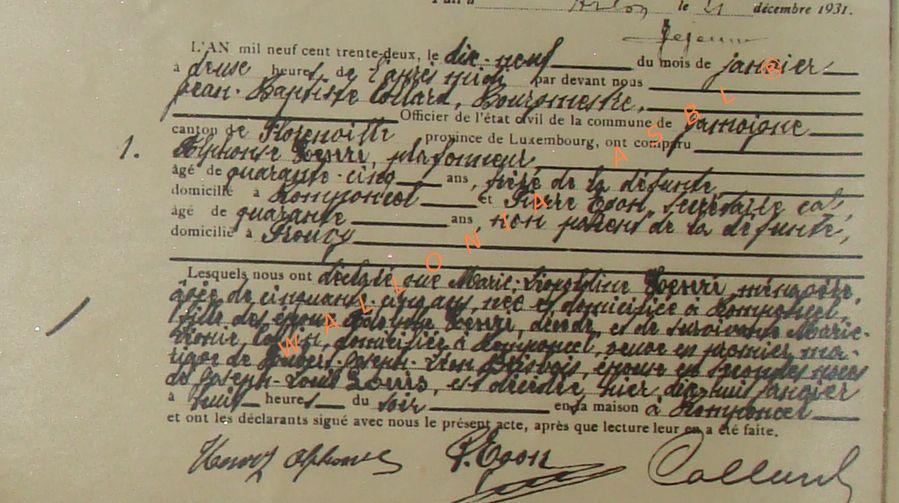 Arlon le 21 décembre 1931.
L'AN mil neuf cent trente-deux, le dix-neuf du mois de janvier
à heures de l'après midi par devant nous
Jean-Baptiste Collard, Bourgmestre,
Officier de l'état civil de la commune de Jamoigne
canton de Florenville province de Luxembourg, ont comparu
1. Alphonse Henri, plafonneur,
âgé de quarante-cinq ans, frère de la défunte
domicilié à Romponcel et Pierre Egon, secrétaire cal
âgé de quarante ans, non parent de la défunte,
domicilié à Prouvy
Lesquels nous ont déclaré que Marie-Léopoldine Henri, ménagère,
âgée de cinquante-cinq ans, née et domiciliée à Romponcel,
fille de Henri, décédé, et de survivante Marie-
domiciliée à Romponcel, veuve en premier ma-
riage de Joseph-Léon épouse en secondes noces
de Joseph-Louis Louis, est décédée hier dix-huit janvier
à huit heures du soir en sa maison à Romponcel
et ont les déclarants signé avec nous le présent acte, après que lecture leur en a été faite.
Henry Alphonse P. Egon Collard
WALLONIA ASBL ®